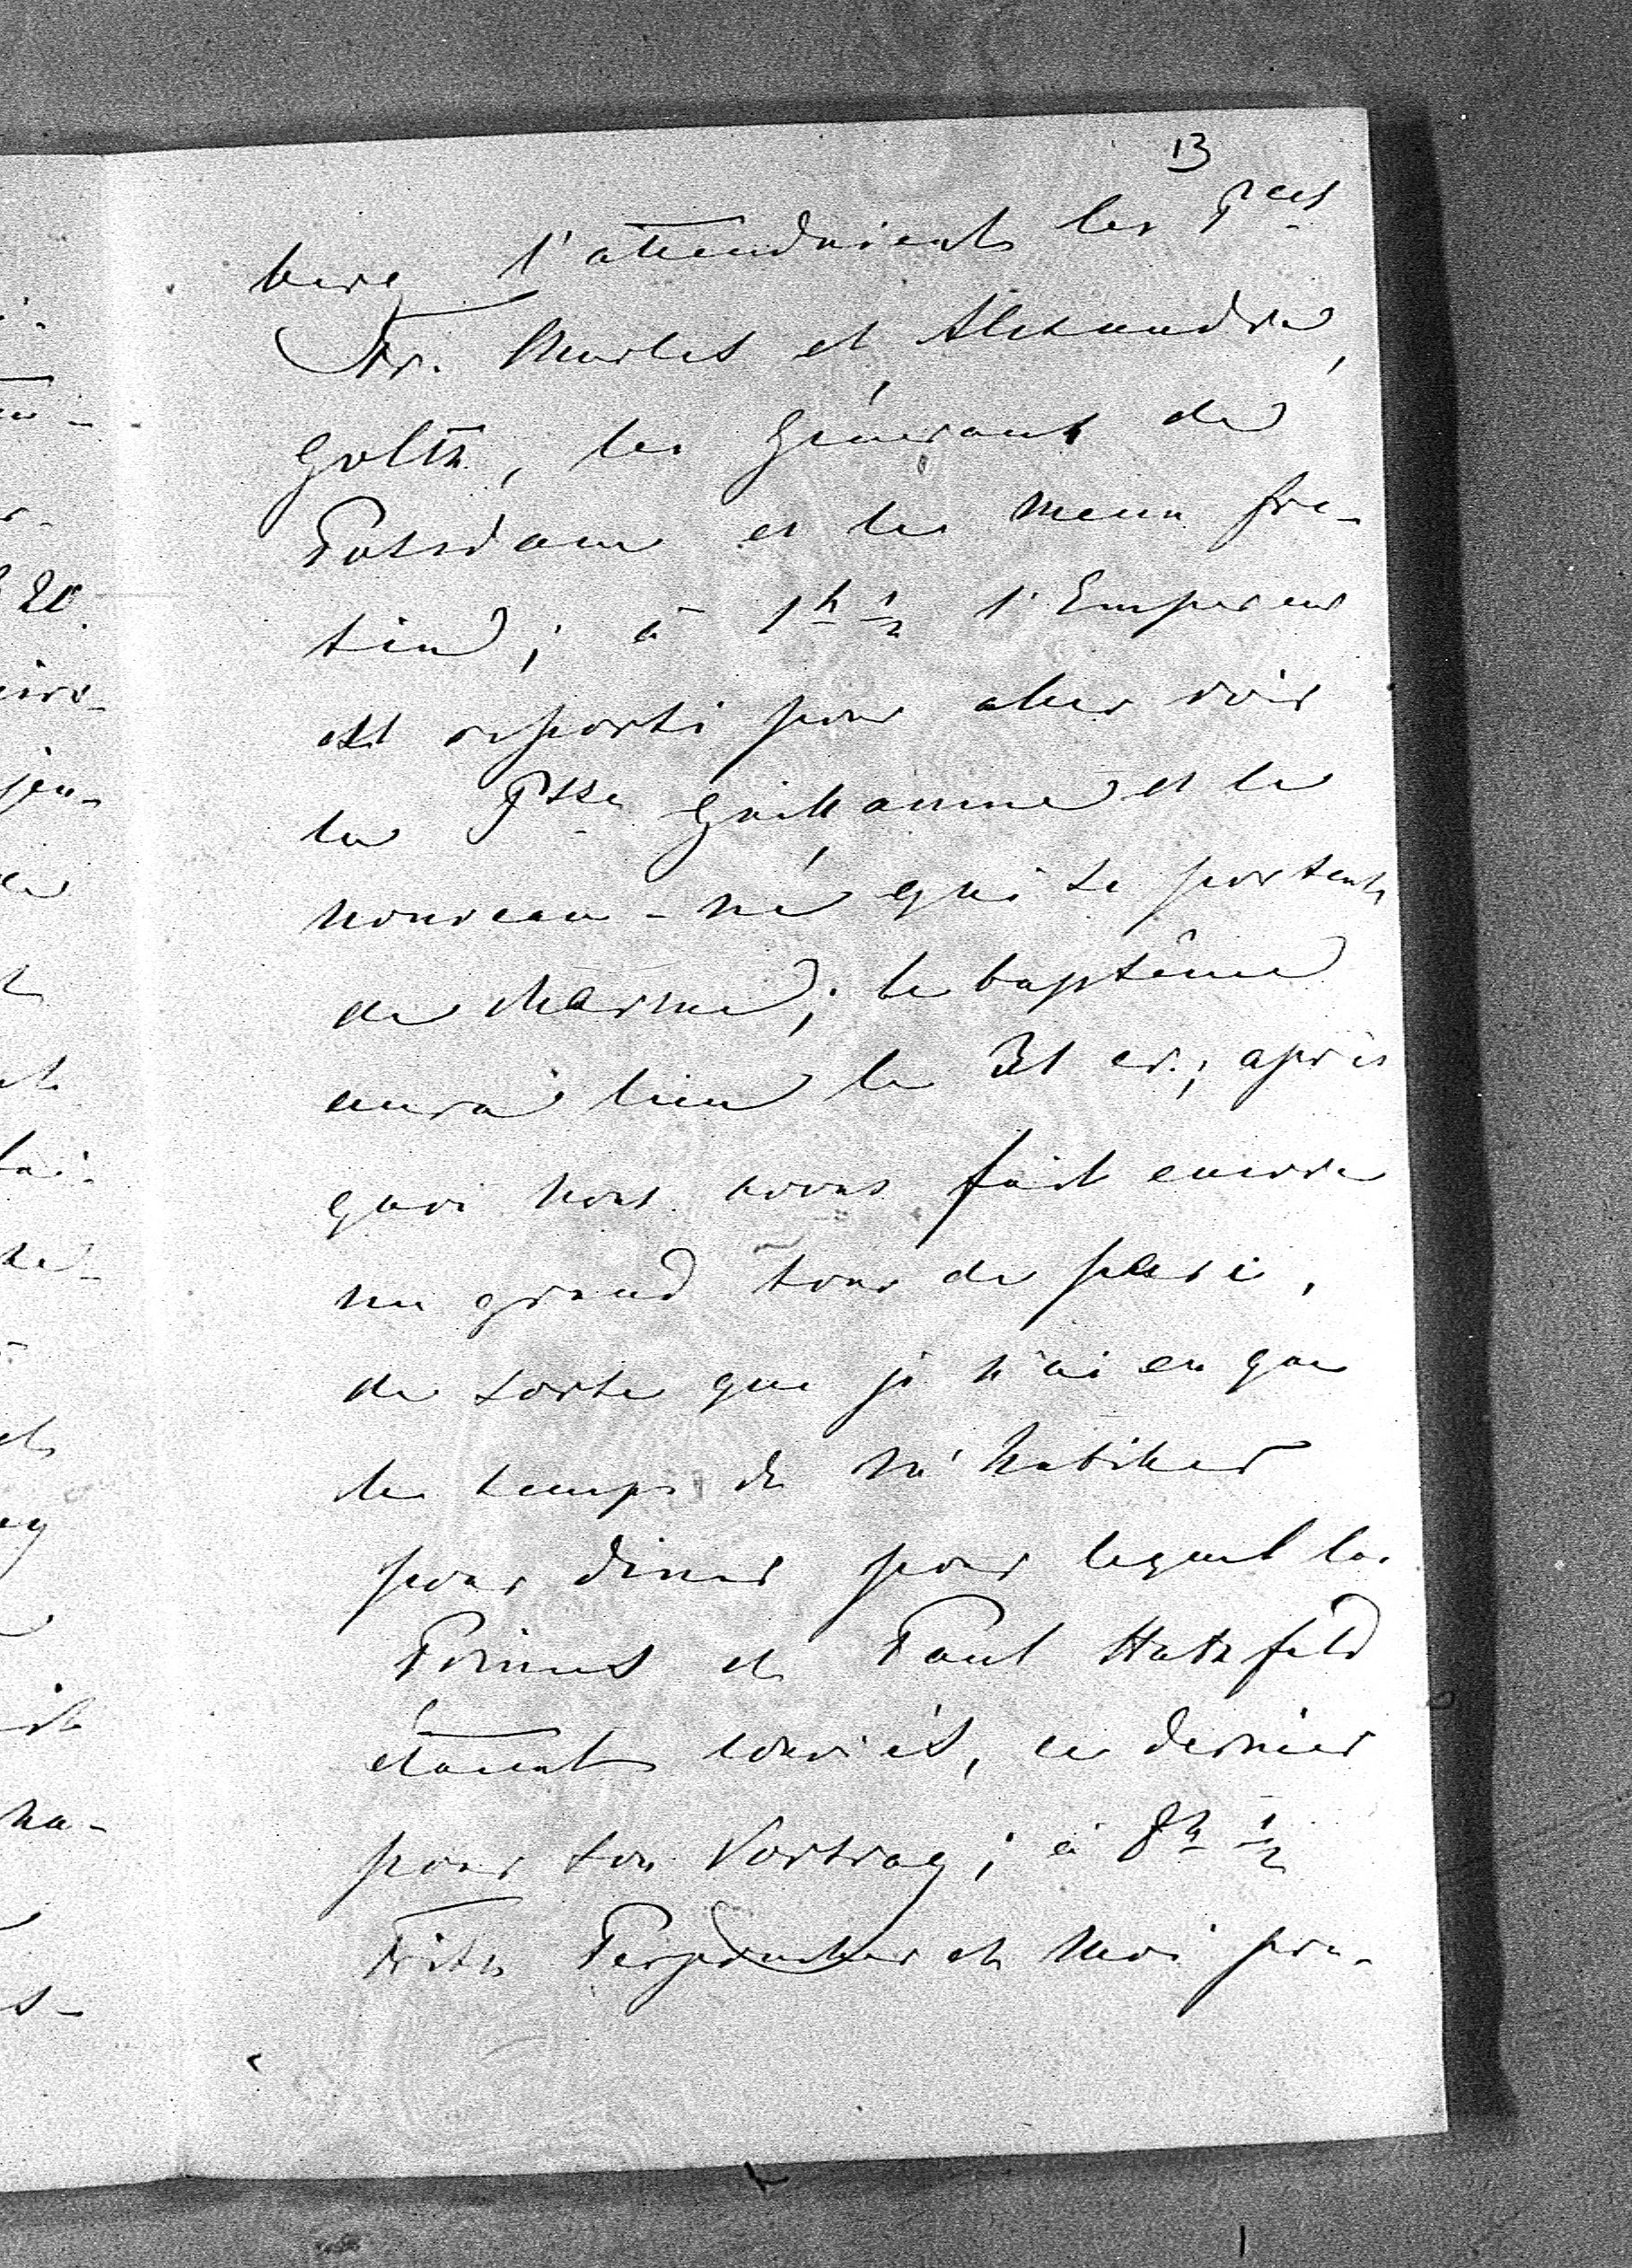 13
berg l'attendaient les P^ces
Fr. Charles et Alexandre,
Goltz, les Généraux de
Potsdam et le menu fre-
tin; à 1^h ½ l'Empereur
est reparti pour aller voir
la P^sse Guillaume et le
nouveau-né qui se portent
à charme; le baptême
aura lieu le 31 cr.; après
quoi nous avons fait encore
un grand tour de parc,
de sorte que je n'ai eu que
le temps de m'habiller
pour diner pour lequel les
Princes et Paul Hatzfeld
étaient conviés, ce dernier
pour son Vortrag; à 8^h ½
Fritz Perponcher et moi pre-